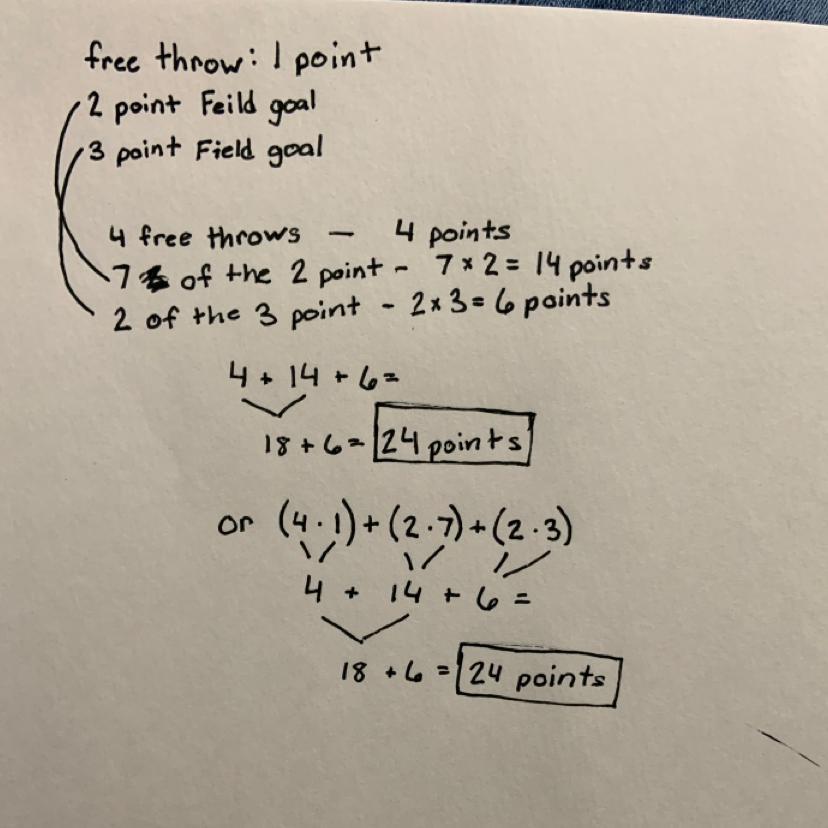 free throw: 1 point
2 point Feild goal
3 point Field goal
4 free throws — 4 points
7 of the 2 point - 7 × 2 = 14 points
2 of the 3 point - 2 × 3 = 6 points
4 + 14 + 6 =
18 + 6 = 24 points
or (4 · 1) + (2 · 7) + (2 · 3)
4 + 14 + 6 =
18 + 6 = 24 points